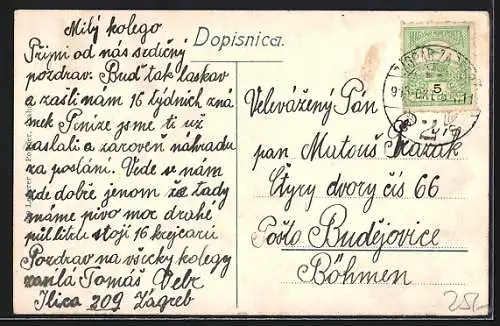 Milý kolego
Přijmi od nás srdečný
pozdrav. Buď tak laskav
a zašli nám 16 týdních zná
mek Peníze jsme ti už
zaslali a zároveň náhradu
za poslání. Vede se nám
zde dobře jenom že tady
máme pivo moc drahé
půl litru stojí 16 krejcarů
Pozdrav na všicky kolegy
zasílá Tomáš Vebr
Ilica 209 Zágreb
Dopisnica.
Velevážený Pan
pan Matouš Kazak
Čtyry dvory čís 66
Pošto Budějovice
Böhmen
5
25/-